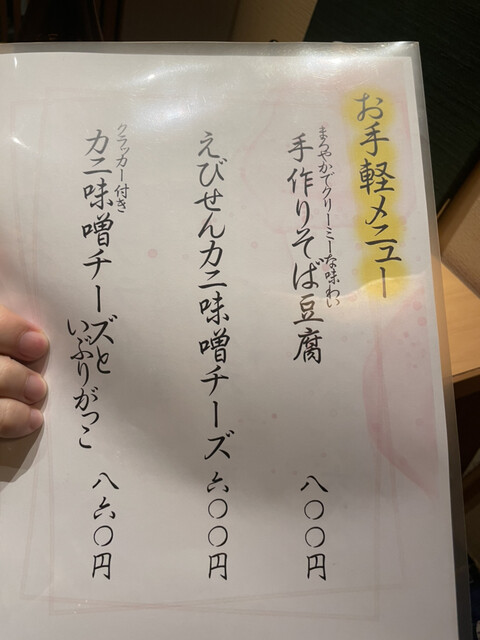 お手軽メニュー
まろやかでクリーミーな味わい
手作りそば豆腐 八〇〇円
えびせんカニ味噌チーズ 六〇〇円
クラッカー付き
カニ味噌チーズと
いぶりがっこ 八六〇円